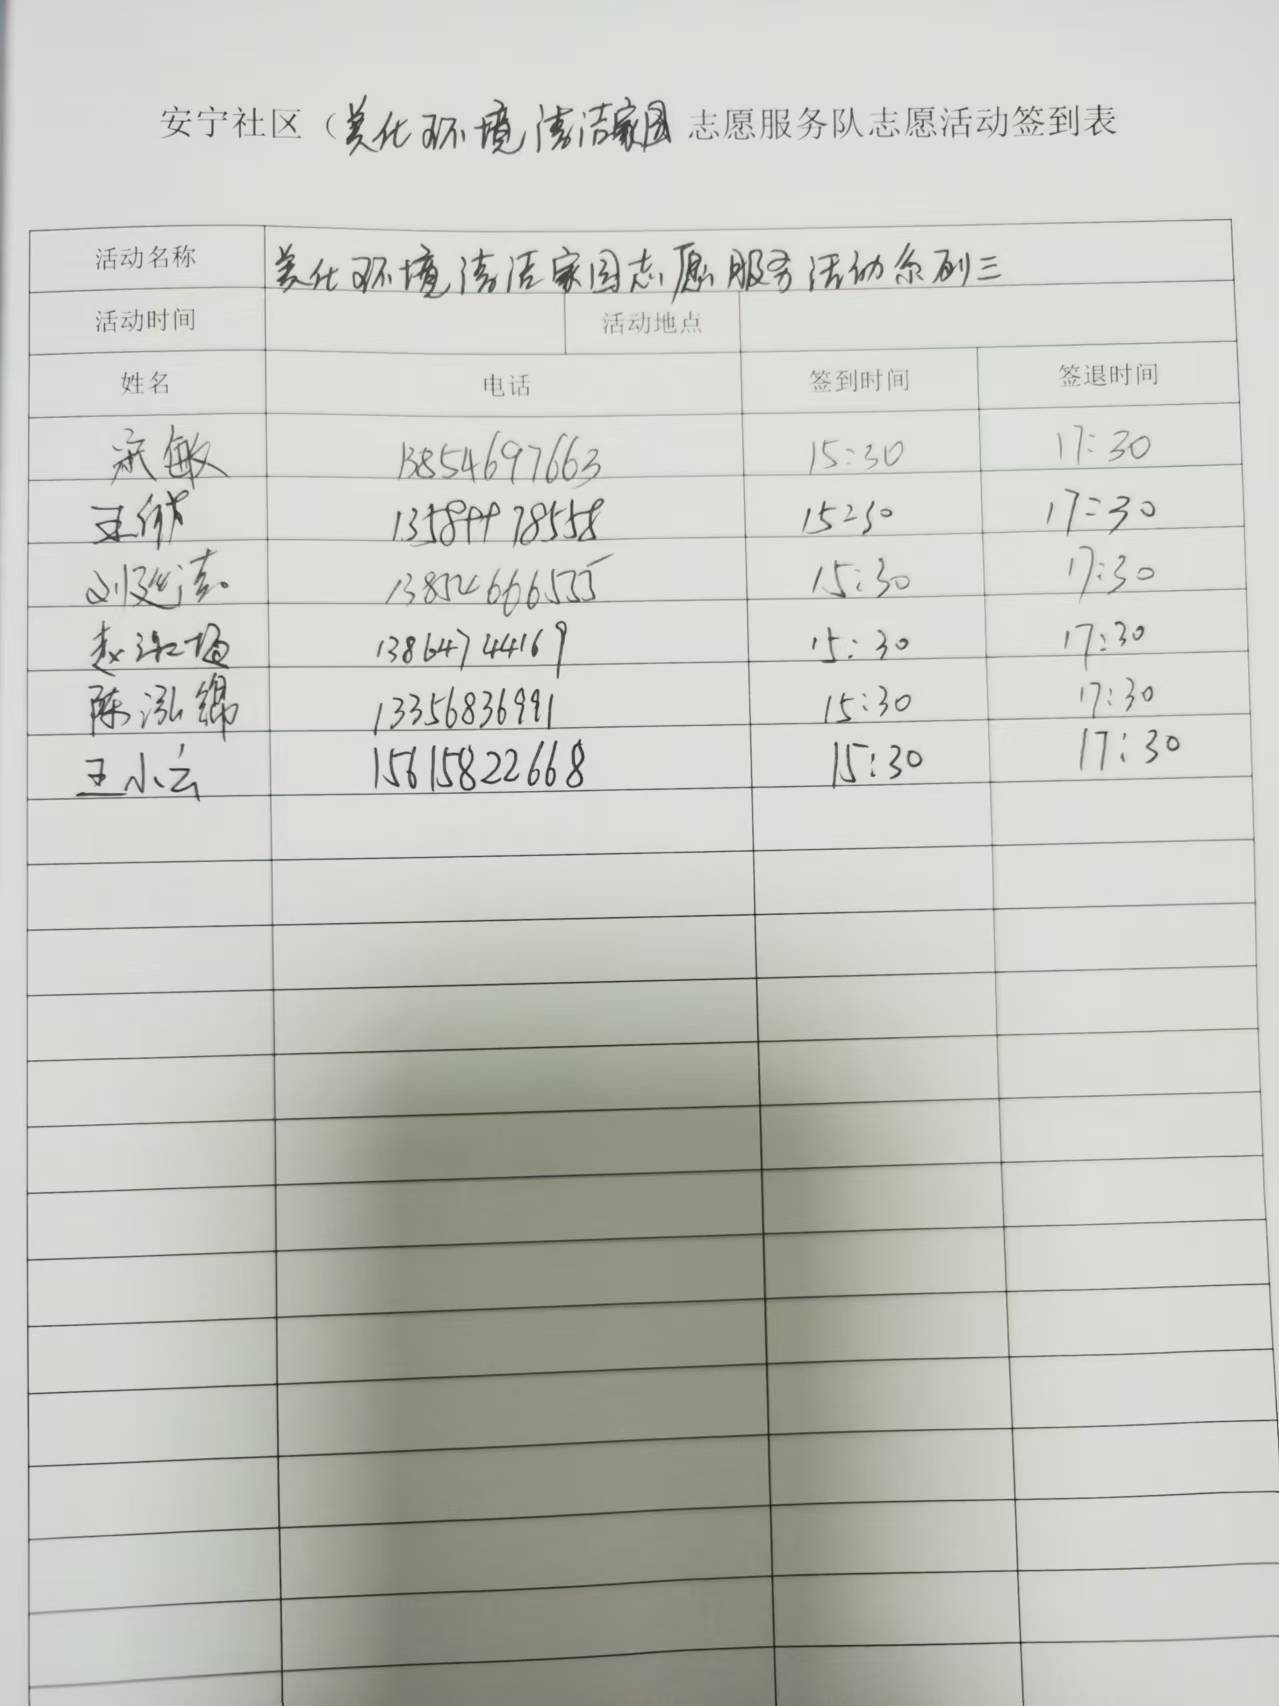 安宁社区（美化环境清洁家园 志愿服务队志愿活动签到表
活动名称 美化环境清洁家园志愿服务活动系列三
活动时间 活动地点
姓名 电话 签到时间 签退时间
宋敏 13854697663 15:30 17:30
王 13589978558 15:30 17:30
刘延清 13854666555 15:30 17:30
赵 13864744169 15:30 17:30
陈泓锦 13356836991 15:30 17:30
王小云 15615822668 15:30 17:30